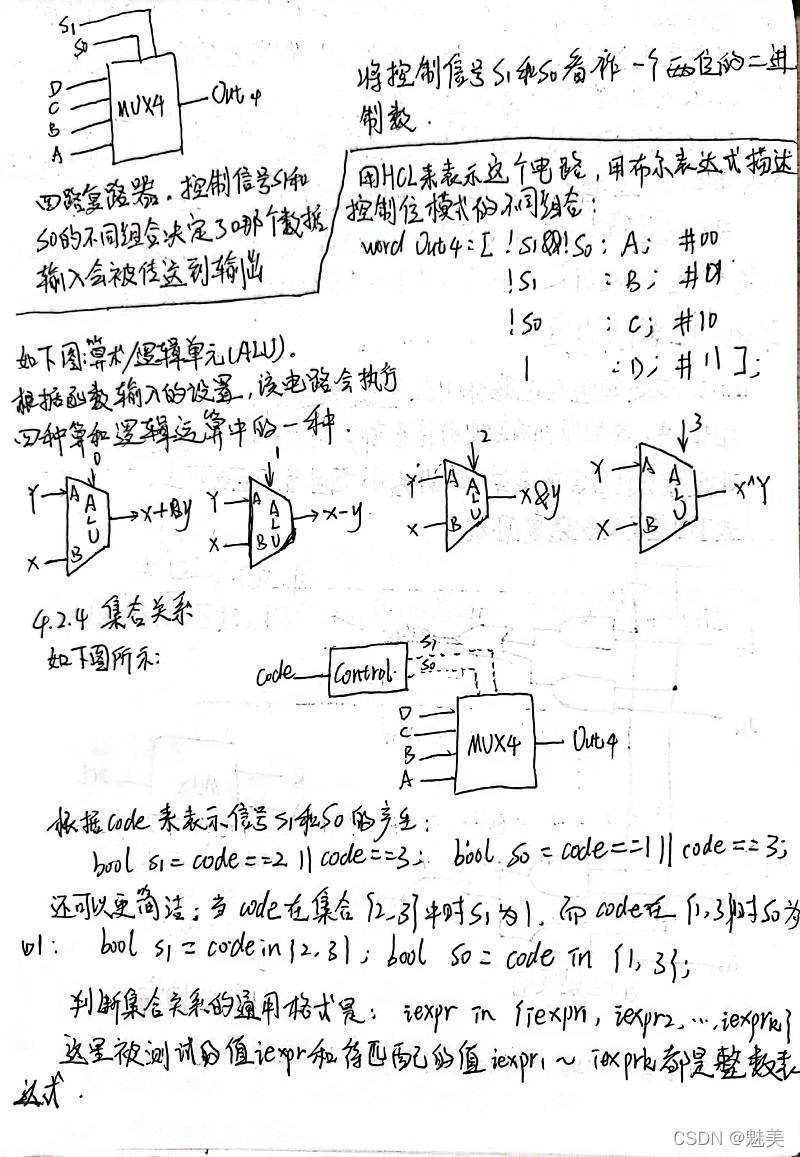 S1
S0
D
C
B
A
MUX4
Out4
将控制信号S1和S0看作一个两位的二进
制数.
四路复路器.控制信号S1和
S0的不同组合决定了哪个数据
输入会被传送到输出
用HCL来表示这个电路,用布尔表达式描述
控制位模式的不同组合:
word Out4=[ !S1&&!S0: A; #00
!S1 : B; #01
!S0 : C; #10
1 : D; #11 ];
如下图:算术/逻辑单元(ALU).
根据函数输入的设置,该电路会执行
四种算和逻辑运算中的一种.
0
Y
A
ALU
X
B
X+Y
1
Y
A
ALU
X
B
X-Y
2
Y
A
ALU
X
B
X&Y
3
Y
A
ALU
X
B
X^Y
4.2.4 集合关系
如下图所示:
code
Control
S1
S0
D
C
B
A
MUX4
Out4
根据code来表示信号S1和S0的产生:
bool s1=code==2 || code==3; bool s0=code==1 || code==3;
还可以更简洁:当code在集合{2,3}中时S1为1,而code在{1,3}时S0为
1: bool s1=code in {2,3}; bool s0=code in {1,3};
判断集合关系的通用格式是: iexpr in {iexpr1, iexpr2, ..., iexprk}
这里被测试的值iexpr和待匹配的值iexpr1~iexprk都是整数表
达式.
CSDN @魅美